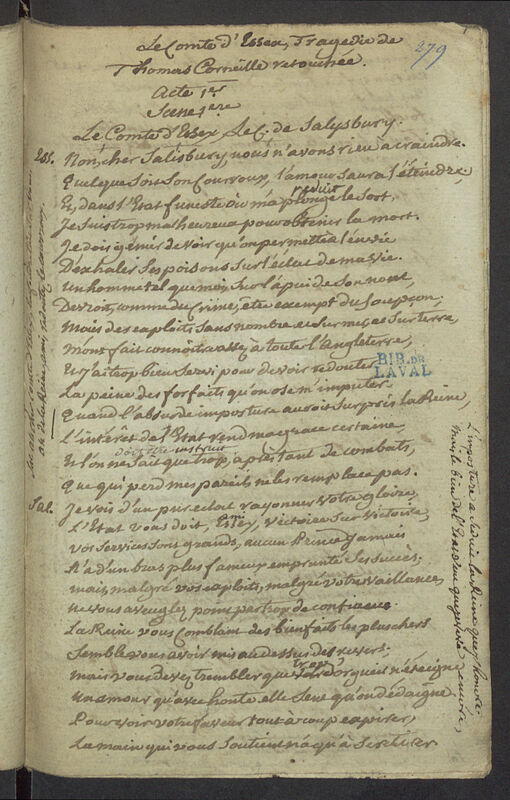 279
Le Comte d'Essex, Tragédie de
Thomas Corneille retouchée.
Acte 1er
Scene 1ere
Le Comte d'Essex Le C. de Salysbury.
Ess. Non, cher Salisbury nous n'avons rien a craindre.
Quelque soit son Courroux, l'amour saura l'éteindre;
Et, dans l'Etat funeste où m'a plongé le Sort,
réduit
Je suis trop malheureux pour obtenir la mort.
Je dois gémir de voir qu'on permette à l'envie
D'exhaler ses poisons sur l'éclat de ma vie.
Un homme tel que moi, sur l'apui de son nom,
Devroit, comme du Crime, être exempt du soupçon;
Mais des exploits sans nombre et sur mer et sur terre,
M'ont fait connoître assez à toute l'Angleterre,
Et j'ai trop bien servi pour devoir redouter
La peine des forfaits qu'on ose m'imputer.
Quand l'absurde imposture auroit surpris la Reine
L'intérêt de l'Etat rend ma grace certaine,
doit être instruit
Et l'on ne sait que trop, après tant de combats,
Que qui perd mes pareils ne les remplace pas.
Sal. Je vois d'un pur eclat rayonner votre gloire,
L'Etat vous doit, Essex, victoire sur victoire,
vos services sont grands, aucun Prince jamais
N'a d'un bras plus fameux emprunté ses succès;
mais, malgré vos exploits, malgré votre vaillance,
ne vous aveuglez point par trop de confiance
La Reine vous comblant des bienfaits les plus chers
Semble vous avoir mis au dessus des revers;
mais vous devez trembler que d'orgueil n'éteigne
trop
Un amour qu'avec honte elle sent qu'on dédaigne
Pour voir votre faveur tout à coup expirer,
La main qui vous soutient n'a qu'à se retirer
L'imposture a séduit la Reine
Mais le bien de l'Etat
BIB. DE
LAVAL